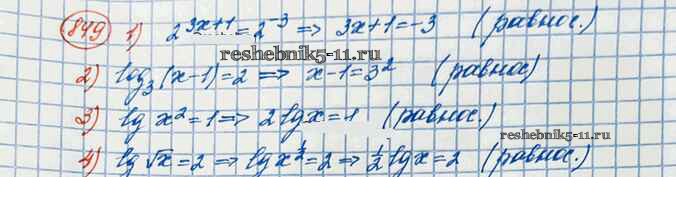 849 1) 2^{3x+1} = 2^{-3} => 3x+1 = -3 (равнос.)
reshebnik5-11.ru
2) log₃(x-1) = 2 => x-1 = 3² (равнос)
3) lg x² = 1 => 2 lg x = 1 (равнос.)
reshebnik5-11.ru
4) lg √x = 2 => lg x^{1/2} = 2 => 1/2 lg x = 2 (равнос.)